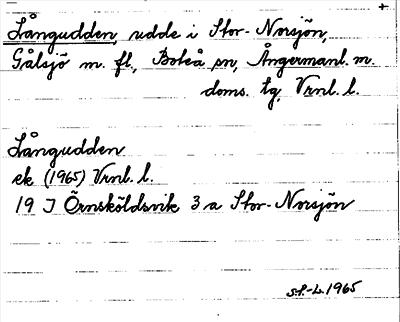 Långudden, udde i Stor-Norsjön,
Gålsjö m. fl., Boteå sn, Ångermanl. m.
doms. tg, Vrnl. l.
Långudden
ek (1965) Vrnl. l.
19 J Örnsköldsvik 3 a Stor-Norsjön
S.P.-L. 1965